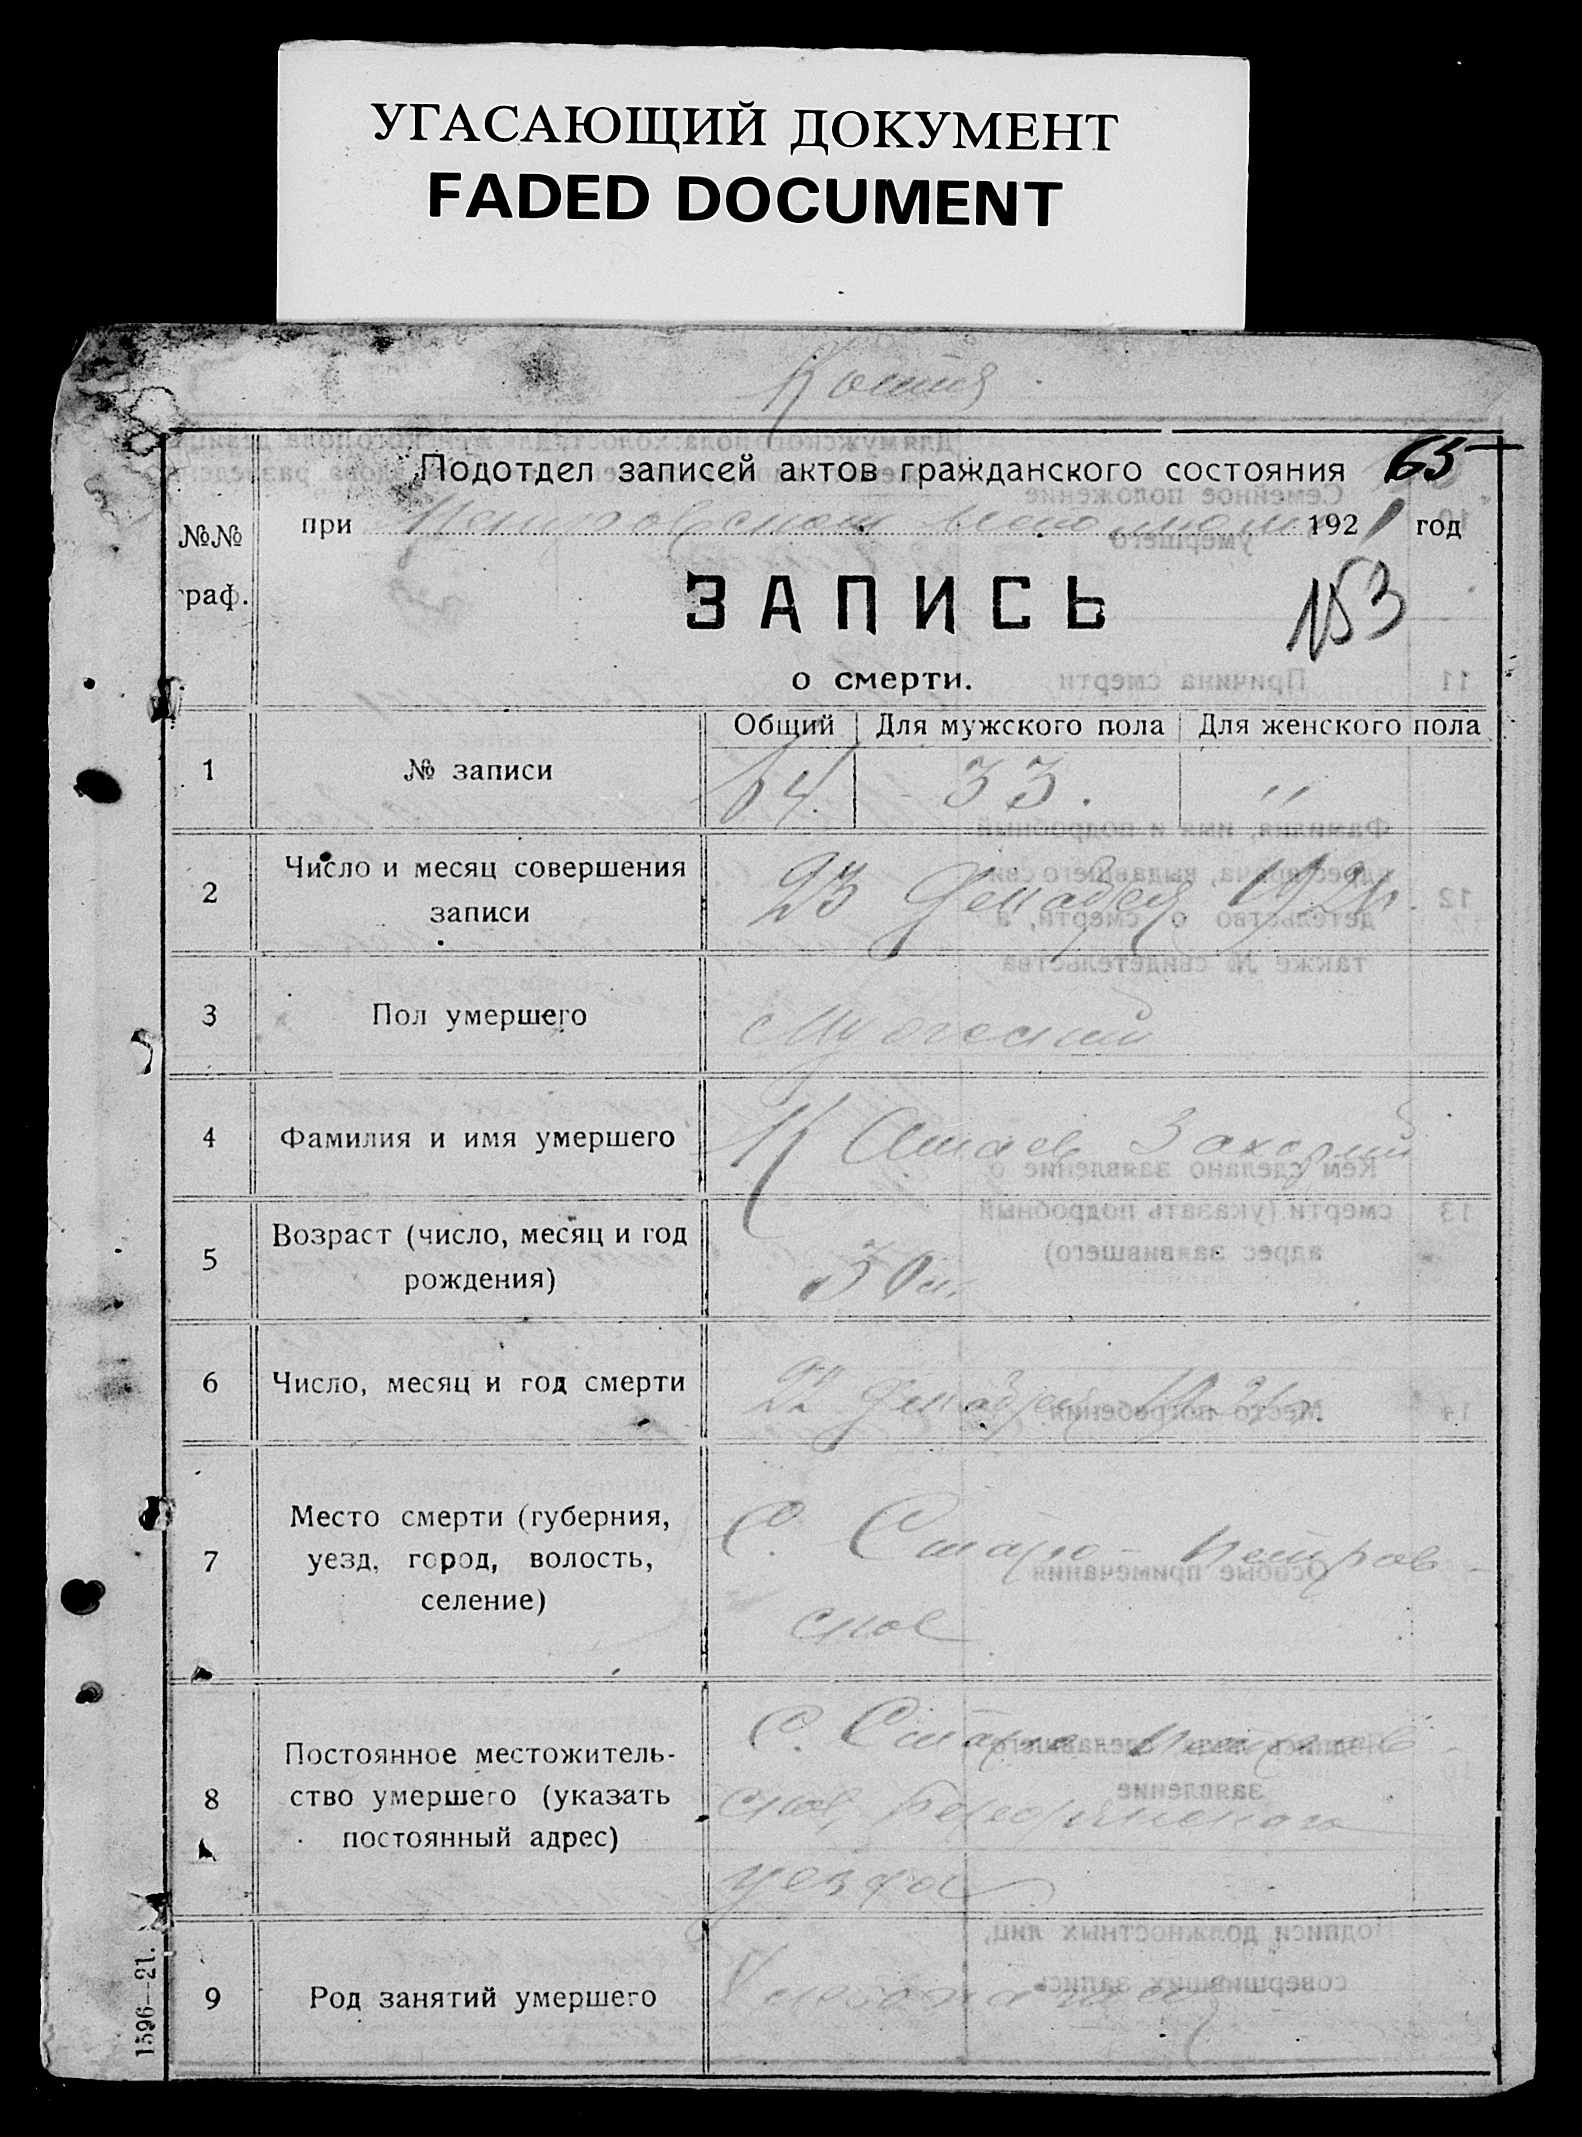 УГАСАЮЩИЙ ДОКУМЕНТ
FADED DOCUMENT
Копия
Подотдел записей актов гражданского состояния 65
при Петровском исполкоме 1921 год
№№
граф.
ЗАПИСЬ
153
о смерти.
Общий Для мужского пола Для женского пола
1 № записи 64. 33. "
2 Число и месяц совершения
записи
23 Декабря 1921 г.
3 Пол умершего Мужеский
4 Фамилия и имя умершего Захарий
5 Возраст (число, месяц и год
рождения)
30 л.
6 Число, месяц и год смерти 22 Декабря 1921 г.
7 Место смерти (губерния,
уезд, город, волость,
селение)
С. Старо-Петров-
ское
8 Постоянное местожитель-
ство умершего (указать
постоянный адрес)
С. Старо Петров-
ское,
уезда
9 Род занятий умершего
1596—21.